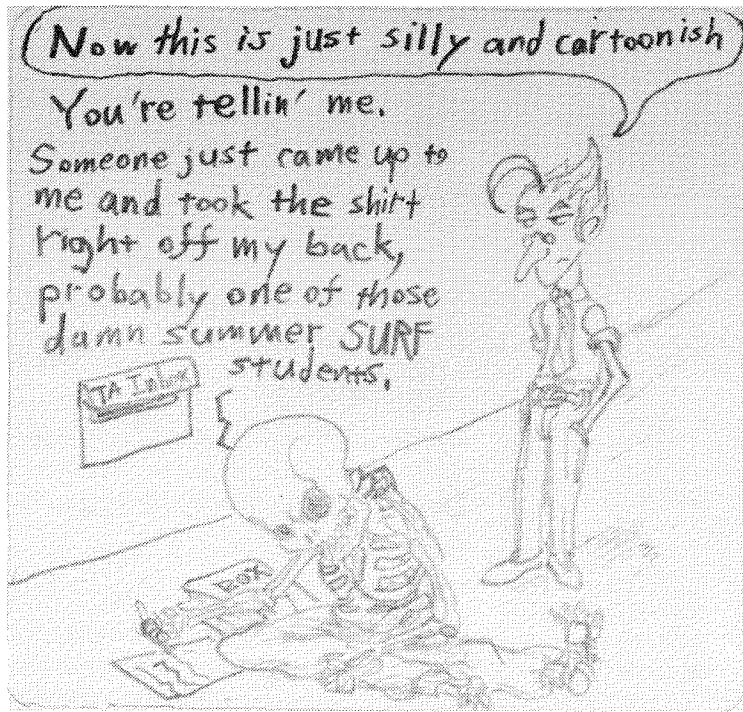 Now this is just silly and cartoonish
You're tellin' me.
Someone just came up to
me and took the shirt
right off my back,
probably one of those
damn summer SURF
students.
TA Inbox
BOX